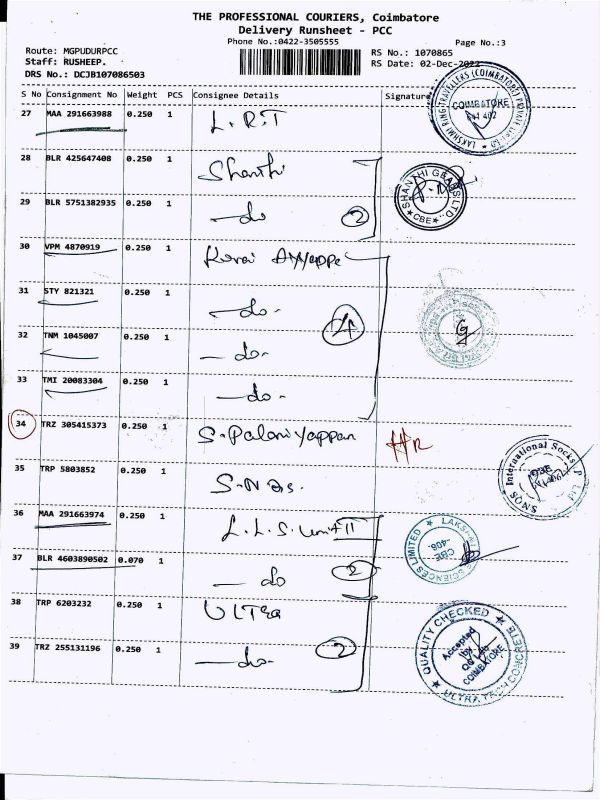 THE PROFESSIONAL COURIERS, Coimbatore
Delivery Runsheet - PCC
Phone No.:0422-3505555
Page No.:3
Route: MGPUDURPCC
RS No.: 1070865
Staff: RUSHEEP.
RS Date: 02-Dec-2022
DRS No.: DCJB107086503
S No Consignment No Weight PCS Consignee Details Signature
27 MAA 291663988 0.250 1 L.R.T
LAKSHMI RING TRAVELLERS (COIMBATORE) PRIVATE LIMITED
COIMBATORE
641 402
28 BLR 425647408 0.250 1 Shanthi
SHANTHI GEARS LTD.
CBE
29 BLR 5751382935 0.250 1 —do 2
30 VPM 4870919 0.250 1
31 STY 821321 0.250 1 —do-
32 TNM 1045007 0.250 1 —do- 4
33 TMI 20083304 0.250 1 —do-
34 TRZ 305415373 0.250 1 S-Palaniyappan
35 TRP 5803852 0.250 1
SNQS International Socks P Ltd
36 MAA 291663974 0.250 1 L.L.S. Unit II
37 BLR 4603890502 0.070 1 —do 2
CBE
-408.
38 TRP 6203232 0.250 1 ULTRA
39 TRZ 255131196 0.250 1 —do- 2
QUALITY CHECKED
Accepted
by
COIMBATORE
ULTRA TECH CONCRETE